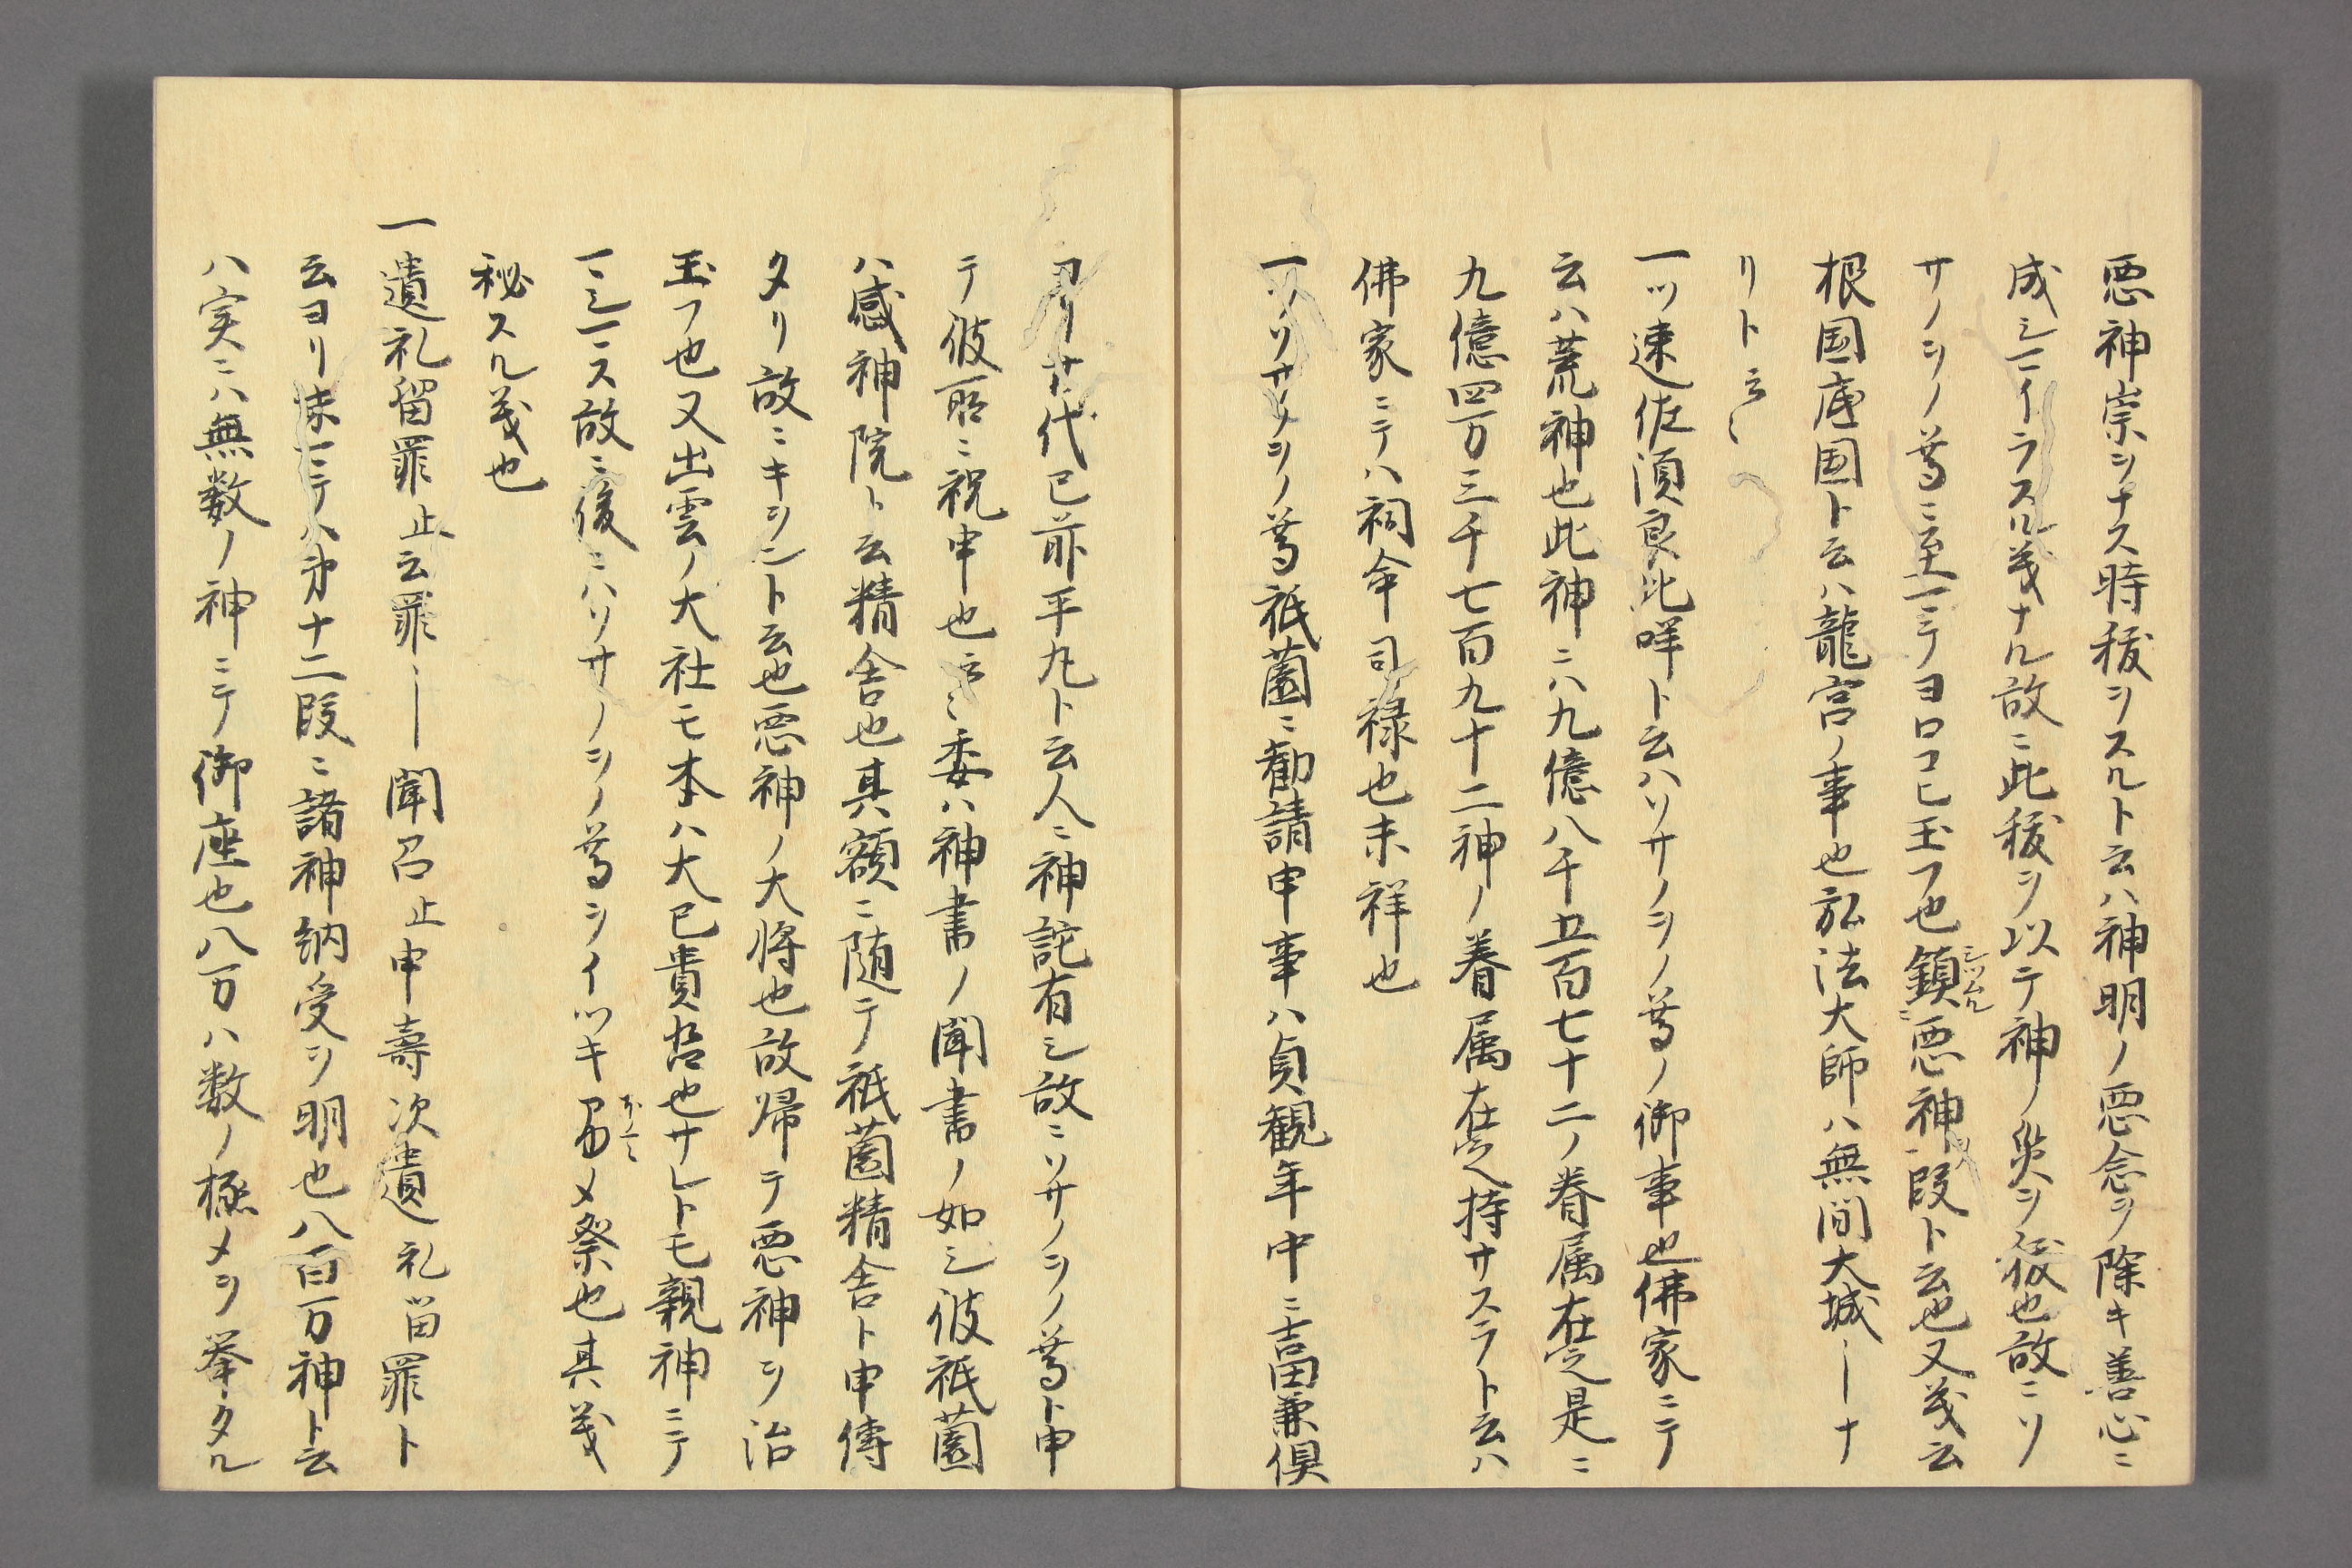 悪神崇ヲナス時秡ヲスルト云ハ神明ノ悪念ヲ除キ善心ニ
成シマイラスル義ナル故ニ此秡ヲ以テ神ノ災ヲ秡也故ニソ
サノヲノ尊ニ至マテヨロコヒ玉フ也鎮シツムルニ悪神段ト云也又義云
根国底国ト云ハ龍宮ノ事也弘法大師ハ無間大城ーナ
リト云々
一ツ速佐須良比咩ト云ハソサノヲノ尊ノ御事也佛家ニテ
云ハ荒神也此神ニハ九億八千五百七十二ノ眷属在之是ニ
九億四万三千七百九十二神ノ眷属在之持サスラト云ハ
佛家ニテハ祠命司禄也未祥也
一ソリサノヲノ尊祇薗ニ勧請申事ハ貞観年中ニ吉田兼倶
ヨリ廿代已前平丸ト云人ニ神託有シ故ニソサノヲノ尊ト申
テ彼所ニ祝申也云々委ハ神書ノ聞書ノ如シ彼祇薗
ハ感神院ト云精舎也其額ニ随テ祇薗精舎ト申傳
タリ故ニキヲント云也悪神ノ大将也故帰テ悪神ヲ治
玉フ也又出雲ノ大社モ本ハ大已貴也サレトモ親神ニテ
マシマス故ニ後ニハソサノヲノ尊ヲイツキメ祭也其義
秘スル義也
一遺礼留罪止云罪ー聞召止申壽次遺礼留罪ト
云ヨリ末マテハ第十二段ニ諸神納受ヲ明也八百万神ト云
ハ実ニハ無数ノ神ニテ御座也八万ハ数ノ極メヲ挙タル